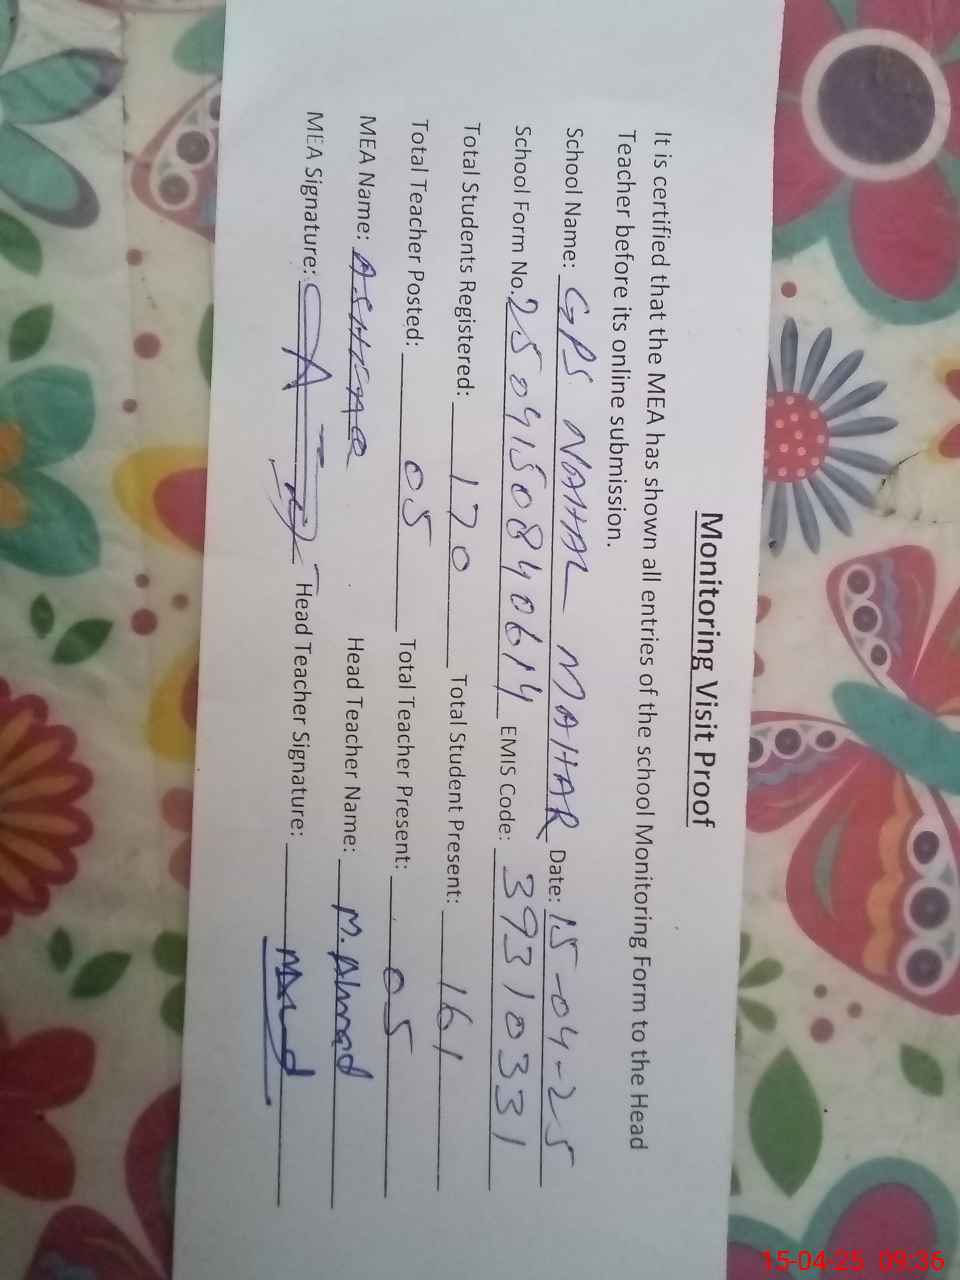 Monitoring Visit Proof
It is certified that the MEA has shown all entries of the school Monitoring Form to the Head
Teacher before its online submission.
School Name: GPS NAHAL MAHAR Date: 15-04-25
School Form No. 2504150840614 EMIS Code: 39310331
Total Students Registered: 170 Total Student Present: 161
Total Teacher Posted: 05 Total Teacher Present: 05
MEA Name: Head Teacher Name: M. Ahmad
MEA Signature: Head Teacher Signature:
15-04-25 09:36